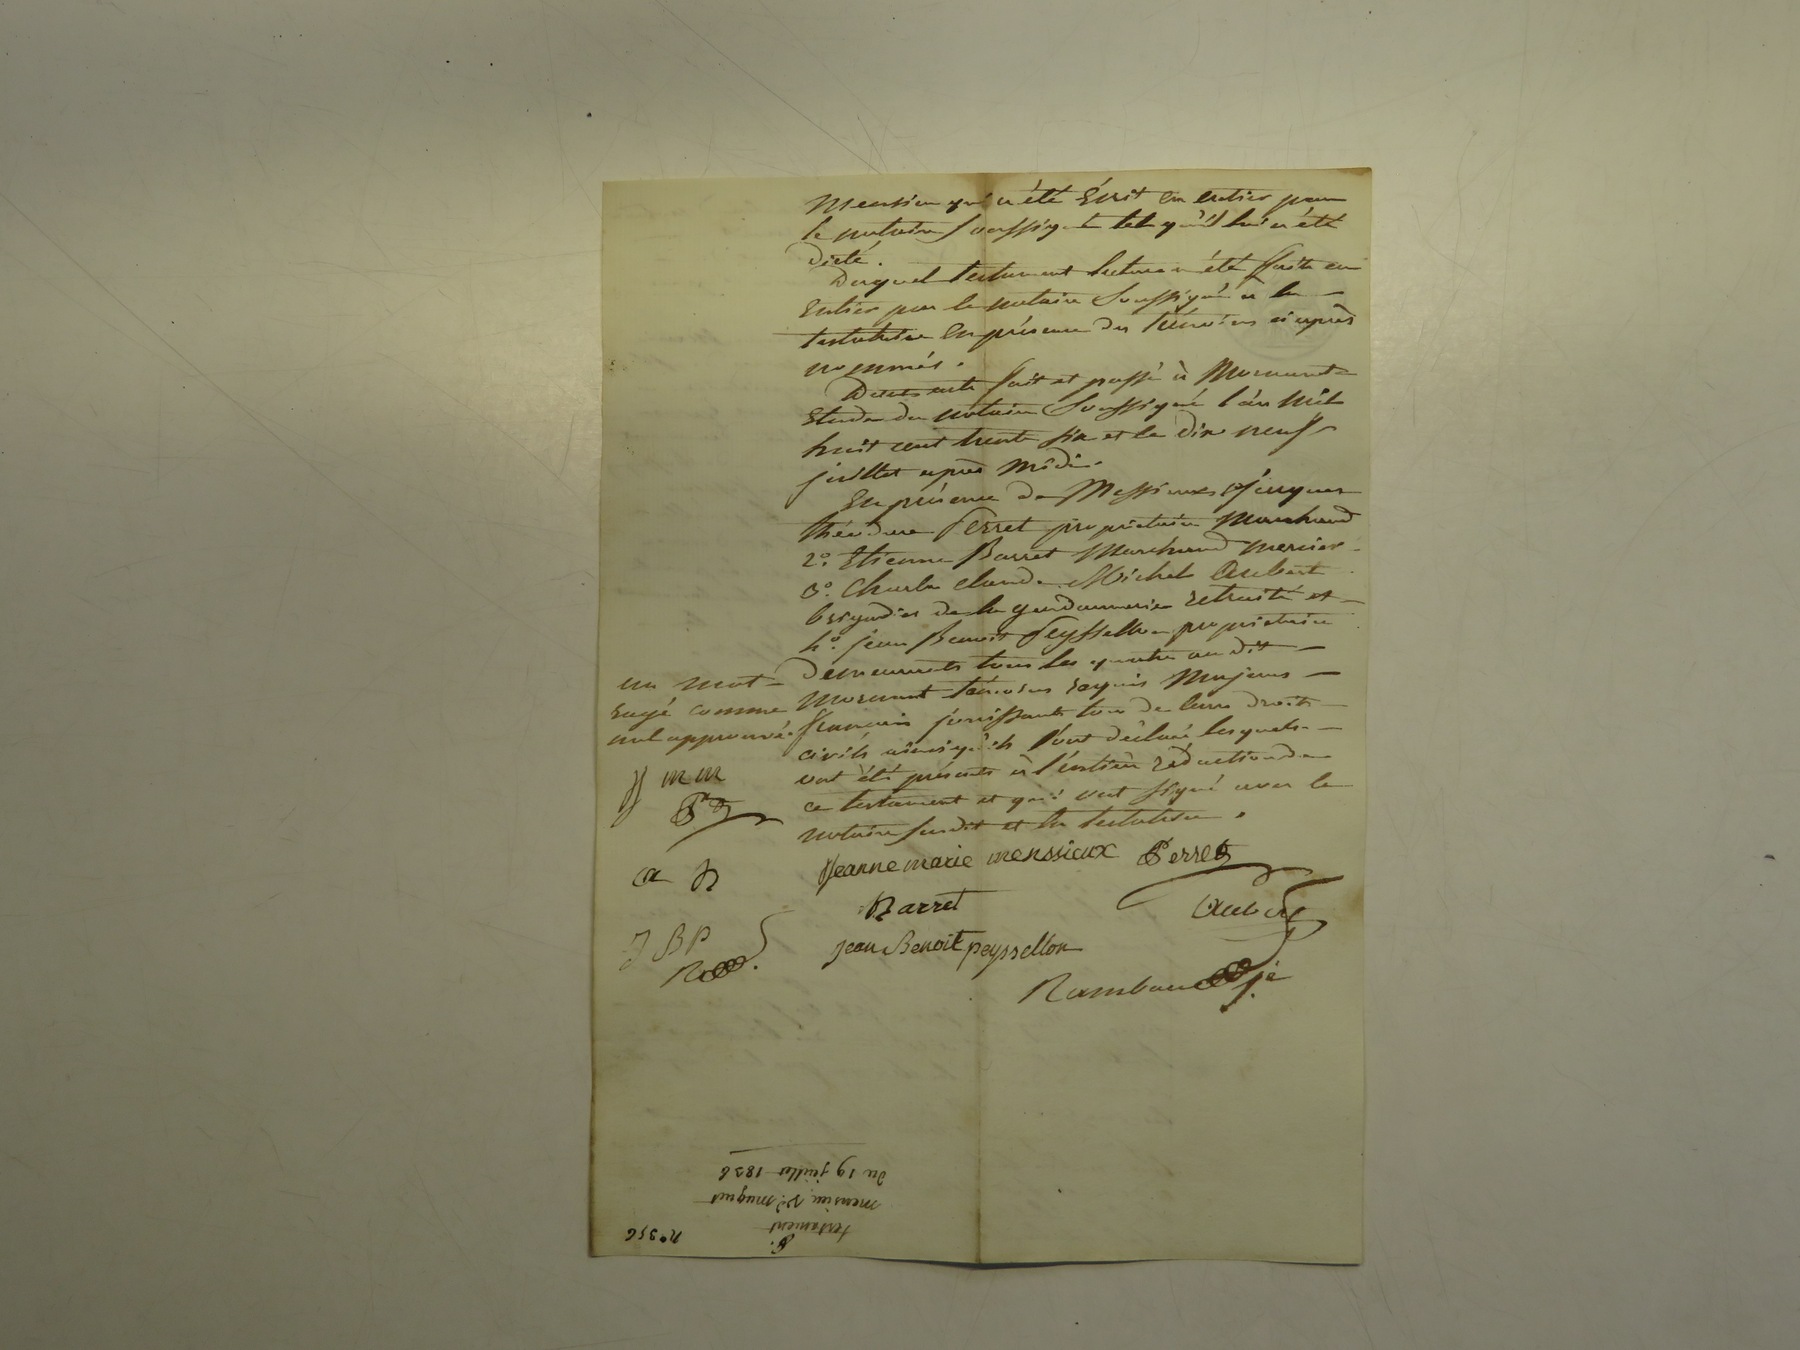 Mensieu qui a été Écrit en entier par
le notaire soussigné tel qu'il lui a été
dicté.
Duquel testament lecture a été faite en
Entier par le notaire soussigné a la
testatrice En présence des témoins ci après
nommés.
Dont acte fait et passé à Mornant
Etude du notaire soussigné l'an mil
huit cent trente six et le dix neuf
juillet après midi.
En présence de Messieurs Jacques
théodore Perret propriétaire Marchand
2.° Etienne Barret Marchand mercier
3.° Charles Claude Michel Aubert
brigadier de la gendarmerie retraité et
4.° jean Benoit Peyssellon propriétaire
demeurants tous les quatre au dit
Mornant témoins requis Majeurs
français jouissants tous de leurs droits
civils ainsi qu'ils l'ont déclaré lesquels
ont été présents à l'entière rédaction de
ce testament et qui ont signé avec le
notaire susdit et la testatrice.
un mot
rayé comme
nul approuvé.
J m m
P
a B
J B P
R
Jeanne marie menssieux Perret
Barret Aubert
jean Benoit peyssellon
Rambaud je
N° 356
8.
testament
mensieu Ve. muguet
du 19 juillet 1836